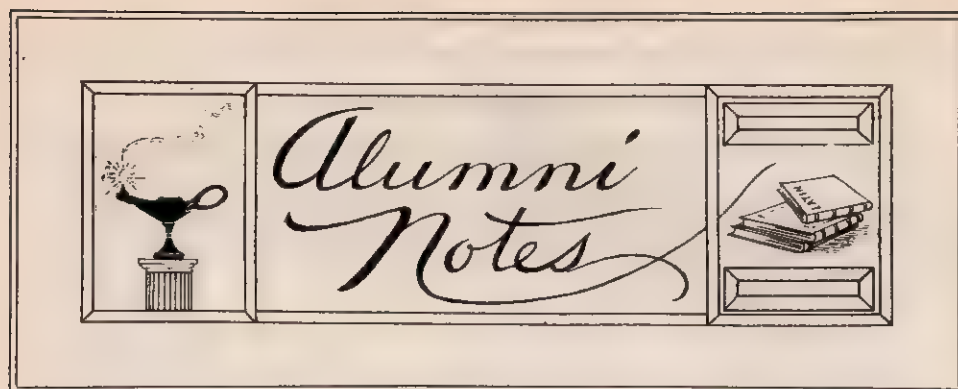 Alumni
Notes
LATIN